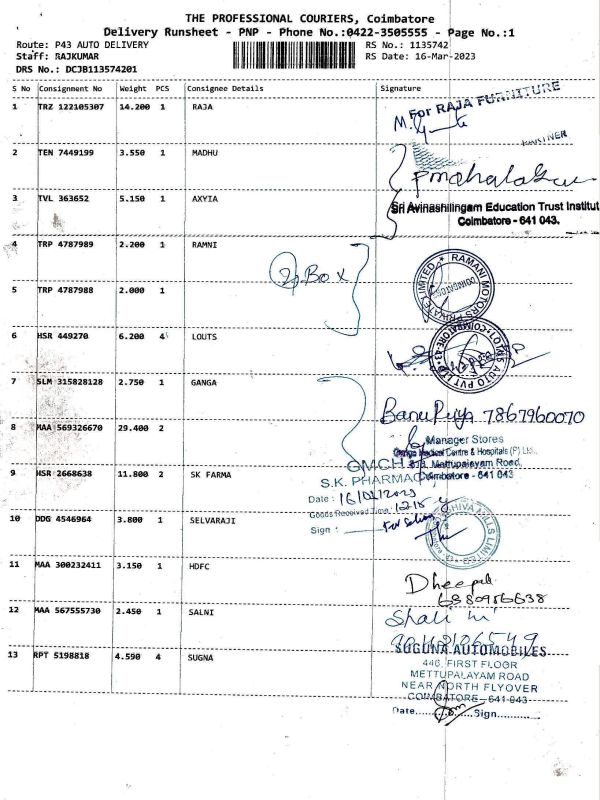 THE PROFESSIONAL COURIERS, Coimbatore
Delivery Runsheet - PNP - Phone No.:0422-3505555 - Page No.:1
Route: P43 AUTO DELIVERY RS No.: 1135742
Staff: RAJKUMAR RS Date: 16-Mar-2023
DRS No.: DCJB113574201
S No Consignment No Weight PCS Consignee Details Signature
1 TRZ 122105307 14.200 1 RAJA
For RAJA FURNITURE
PARTNER
2 TEN 7449199 3.550 1 MADHU
3 TVL 363652 5.150 1 AXYIA
Sri Avinashilingam Education Trust Institut
Coimbatore - 641 043.
4 TRP 4787989 2.200 1 RAMNI
Box
RAMANI MOTORS PRIVATE LIMITED
5 TRP 4787988 2.000 1
6 HSR 449270 6.200 4 LOUTS
7 SLM 315828128 2.750 1 GANGA
Banu Priya 7867960070
8 MAA 569326670 29.400 2
Manager Stores
Ganga Medical Centre & Hospitals (P) Ltd.,
Mettupalayam Road,
Coimbatore - 641 043
9 HSR 2668638 11.800 2 SK FARMA
GMCH
S.K. PHARMA
Date :
Goods Received Time 1215
Sign :
10 DDG 4546964 3.800 1 SELVARAJI
SHIVA MILLS LIMITED
11 MAA 300232411 3.150 1 HDFC
12 MAA 567555730 2.450 1 SALNI
13 RPT 5198818 4.590 4 SUGNA
SUGUNA AUTOMOBILES
446, FIRST FLOOR
METTUPALAYAM ROAD
NEAR NORTH FLYOVER
COIMBATORE - 641 043
Date............Sign............